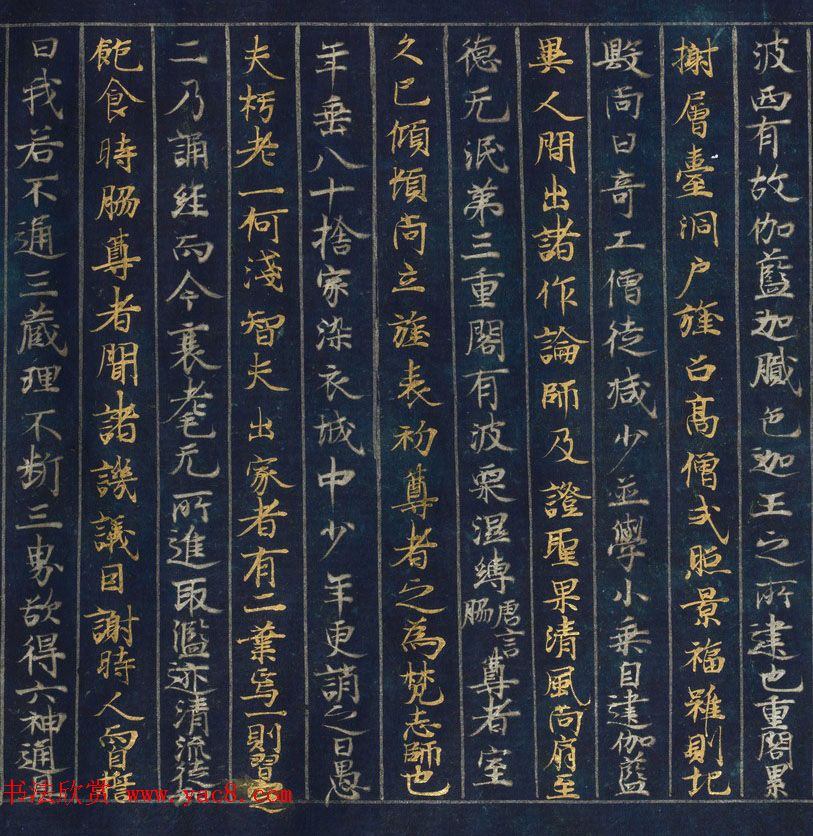 波西有故伽藍迦膩色迦王之所建也重閣累
榭層臺洞户旌召高僧式昭景福雖則圮
毀尚曰奇工僧徒減少並學小乘自建伽藍
異人間出諸作論師及證聖果清風尚扇至
德无泯第三重閣有波栗濕縛唐言脇尊者室
久已傾頓尚立旌表初尊者之為梵志師也
年垂八十捨家染衣城中少年更誚之曰愚
夫朽老一何淺智夫出家者有二業焉一則習定
二乃誦經而今衰耄无所進取濫迹清流徒
飽食時脇尊者聞諸譏議因謝時人而自誓
曰我若不通三藏理不斷三界欲得六神通具
书法欣赏 www.yac8.com